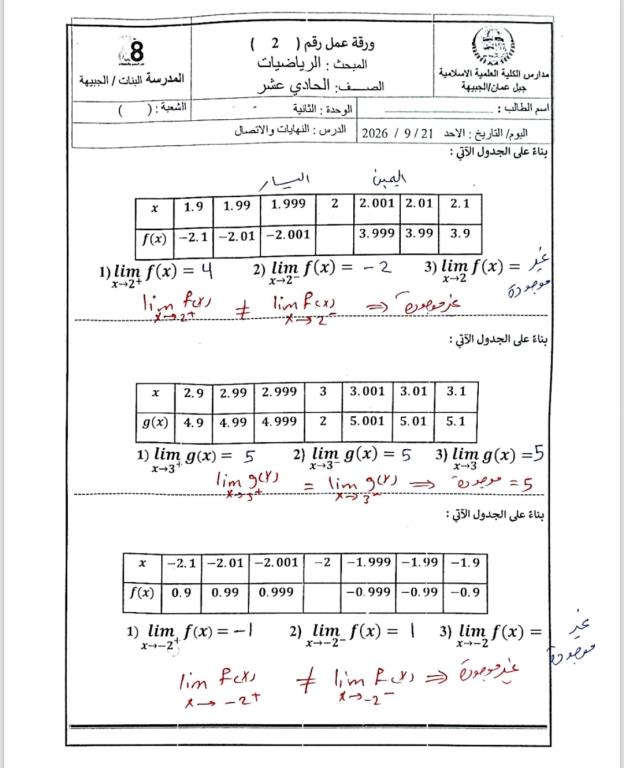 مدارس الكلية العلمية الاسلامية
جبل عمان/الجبيهة
ورقة عمل رقم ( 2 )
المبحث : الرياضيات
الصـــف: الحادي عشر
8
المدرسة البنات / الجبيهة
اسم الطالب :
الوحدة : الثانية
الشعبة : ( )
اليوم/ التاريخ : الاحد 21/ 9 / 2026
الدرس : النهايات والاتصال
بناءً على الجدول الآتي :
اليسار اليمين
x 1.9 1.99 1.999 2 2.001 2.01 2.1
f(x) −2.1 −2.01 −2.001 3.999 3.99 3.9
1) lim x→2⁺ f(x) = 4 2) lim x→2⁻ f(x) = −2 3) lim x→2 f(x) = غير موجودة
lim x→2⁺ f(x) ≠ lim x→2⁻ f(x) ⇒ غير موجودة
بناءً على الجدول الآتي :
x 2.9 2.99 2.999 3 3.001 3.01 3.1
g(x) 4.9 4.99 4.999 2 5.001 5.01 5.1
1) lim x→3⁺ g(x) = 5 2) lim x→3⁻ g(x) = 5 3) lim x→3 g(x) =5
lim x→3⁺ g(x) = lim x→3⁻ g(x) ⇒ موجودة = 5
بناءً على الجدول الآتي :
x −2.1 −2.01 −2.001 −2 −1.999 −1.99 −1.9
f(x) 0.9 0.99 0.999 −0.999 −0.99 −0.9
1) lim x→−2⁺ f(x) = −1 2) lim x→−2⁻ f(x) = 1 3) lim x→−2 f(x) = غير موجودة
lim x→−2⁺ f(x) ≠ lim x→−2⁻ f(x) ⇒ غير موجودة